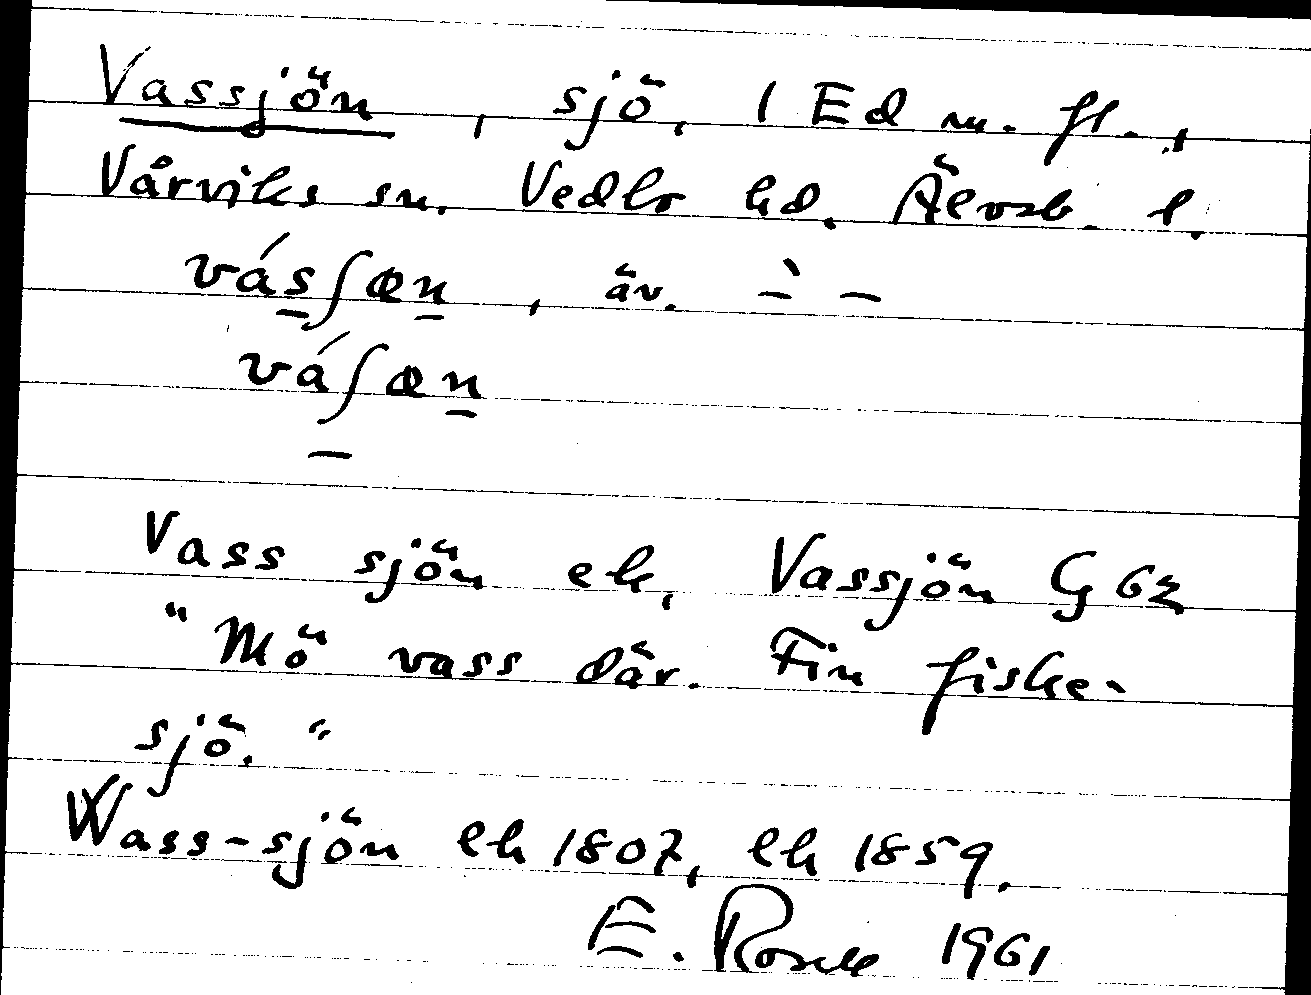 Vassjön, sjö, 1 Ed m. fl.,
Vårviks sn. Vedbo hd. Älvsb. l.
vásʃœn, äv. ` – –
váʃœn
–
Vass sjön ek, Vassjön G 62
"Mö vass där. Fin fiske-
sjö."
Wass-sjön lk 1807, lk 1859.
E. Rosell 1961